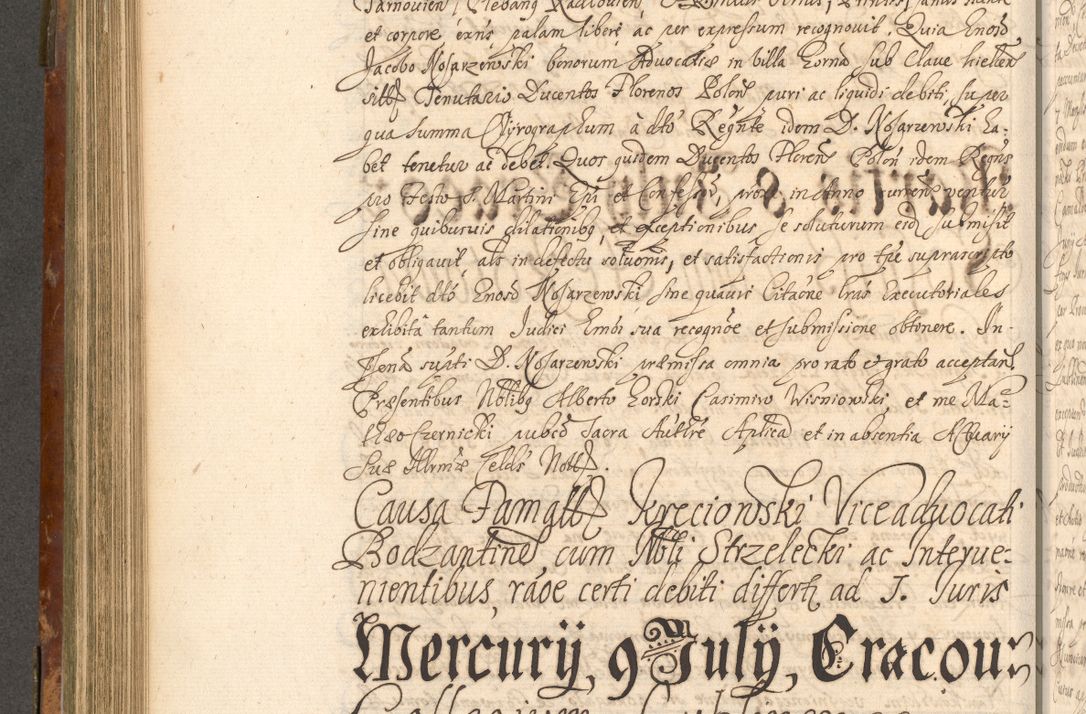 et corpore exñs palam libere ac per expressum recognovit. Quia Gnoso
Jacobo Nosarzewski bonorum Advocatiæ in villa Gorna sub Clave Kielcen
sitt Tenutario Ducentos Florenos Polon puri ac liquidi debiti, super
qua summa Chyrographum à dtô Regnte idem D. Nosarzewski ha-
bet tenetur ac debet. Quos quidem Ducentos Floren Polon idem Regns
pro Festo S. Martini Epi et Confessor, prox in Anno curren ventur
sine quibusvis dilationibq, et exceptionibus se soluturum eid submisit
et obligavit als in defectu solutonis, et satisfactionis pro tpe suprascripto
licebit dtô Gnoso Nosarzewski sine quavis Citaône lras Executoriales
exhibita tantum Judici sua recognôe et submissione obtenere. In-
super D. Nosarzewski præmissa omnia pro rato et grato acceptan.
Præsentibus Nblibq Alberto Gorski Casimiro Wisniowski, et me Ma-
thæo Czernicki pubco Sacra Authte Aplica et in absentia Actuarij
Suæ Notto.
Causa Famati Kręciowski Viceadvocati
Bodzantinen cum Nbli Strzelecki ac Interve-
nientibus, raôe certi debiti differt ad J. Juris
Mercurij, 9 Julij, Cracou: